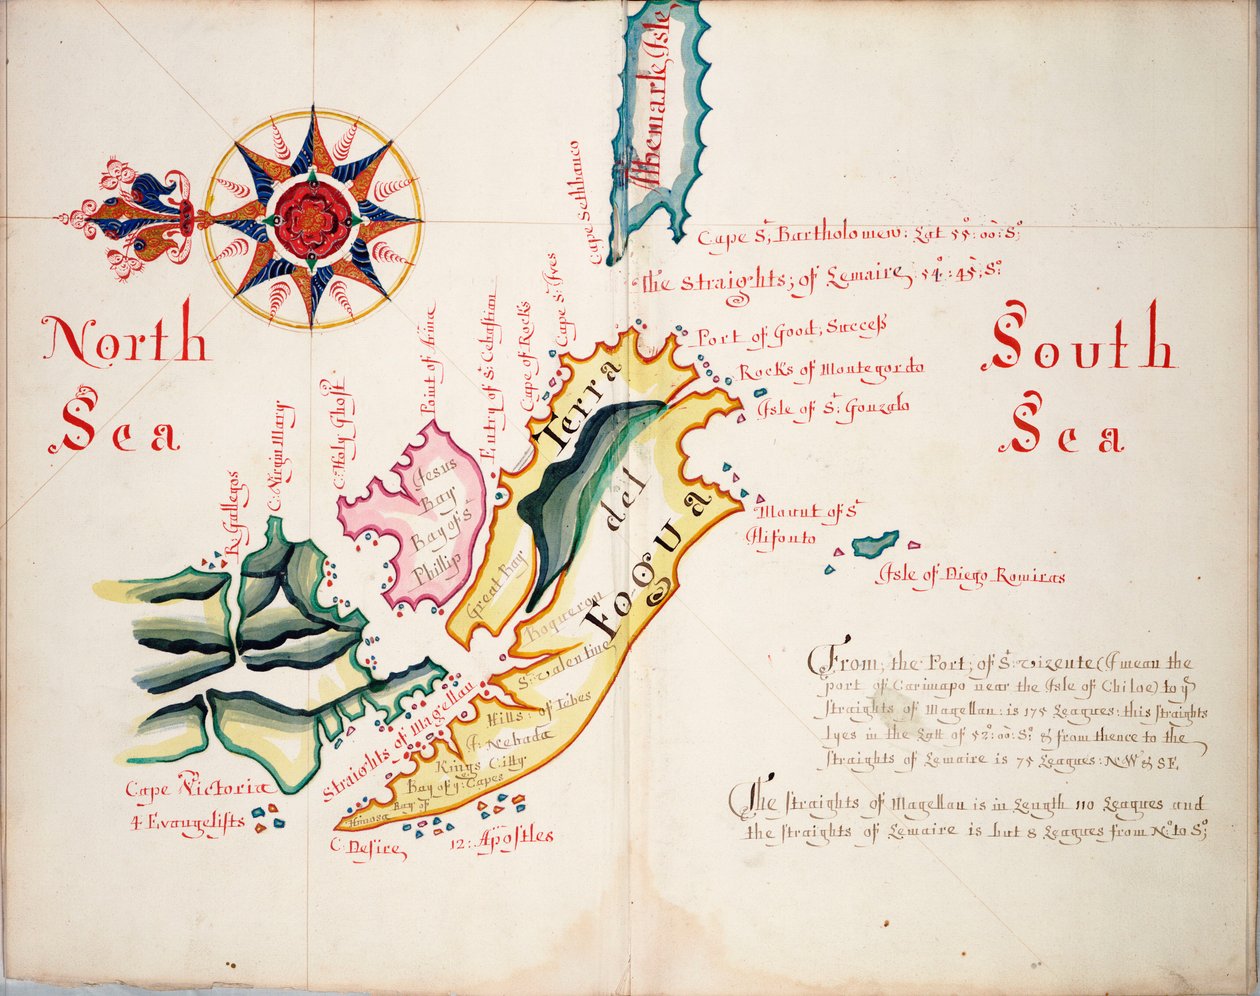 Albemarle Isle
Cape Sethbanco
Cape St, Bartholomew: Lat 55°:00: S°
The Straights; of Lemaire, 54°:45; S°
North
Sea
South
Sea
Port of Good; Success
Rocks of Montegordo
Isle of St: Gonzalo
Cape St: Ives
Cape of Rocks
Entry of St: Cebastian
Point of Anna
C: Holy Ghost
C: Virgin Mary
R: Gallegos
Terra
del
Fogua
Jesus
Bay
Bay of St
Phillip
Great Bay
Roqueron
St: Valentine
Isle of Diego Romiras
Straights of Magellan
Hills: of
Nebada
Kings C:illy
Bay of y: Capes
Bay of
Cape Victoria
4 Evangelists
C: Desire
12: Apostles
From, the Port; of St: Vizente (I mean the
port of Carimapo near the Isle of Chiloe) to ye
Straights of Magellan: is 175 Leagues: this straights
lyes in the Latt of 52°:00: S° & from thence to the
Straights of Lemaire is 75 Leagues: N:W & SE.
The straights of Magellan is in Length 110 Leagues and
the straights of Lemaire is but 8 Leagues from N° to S°;